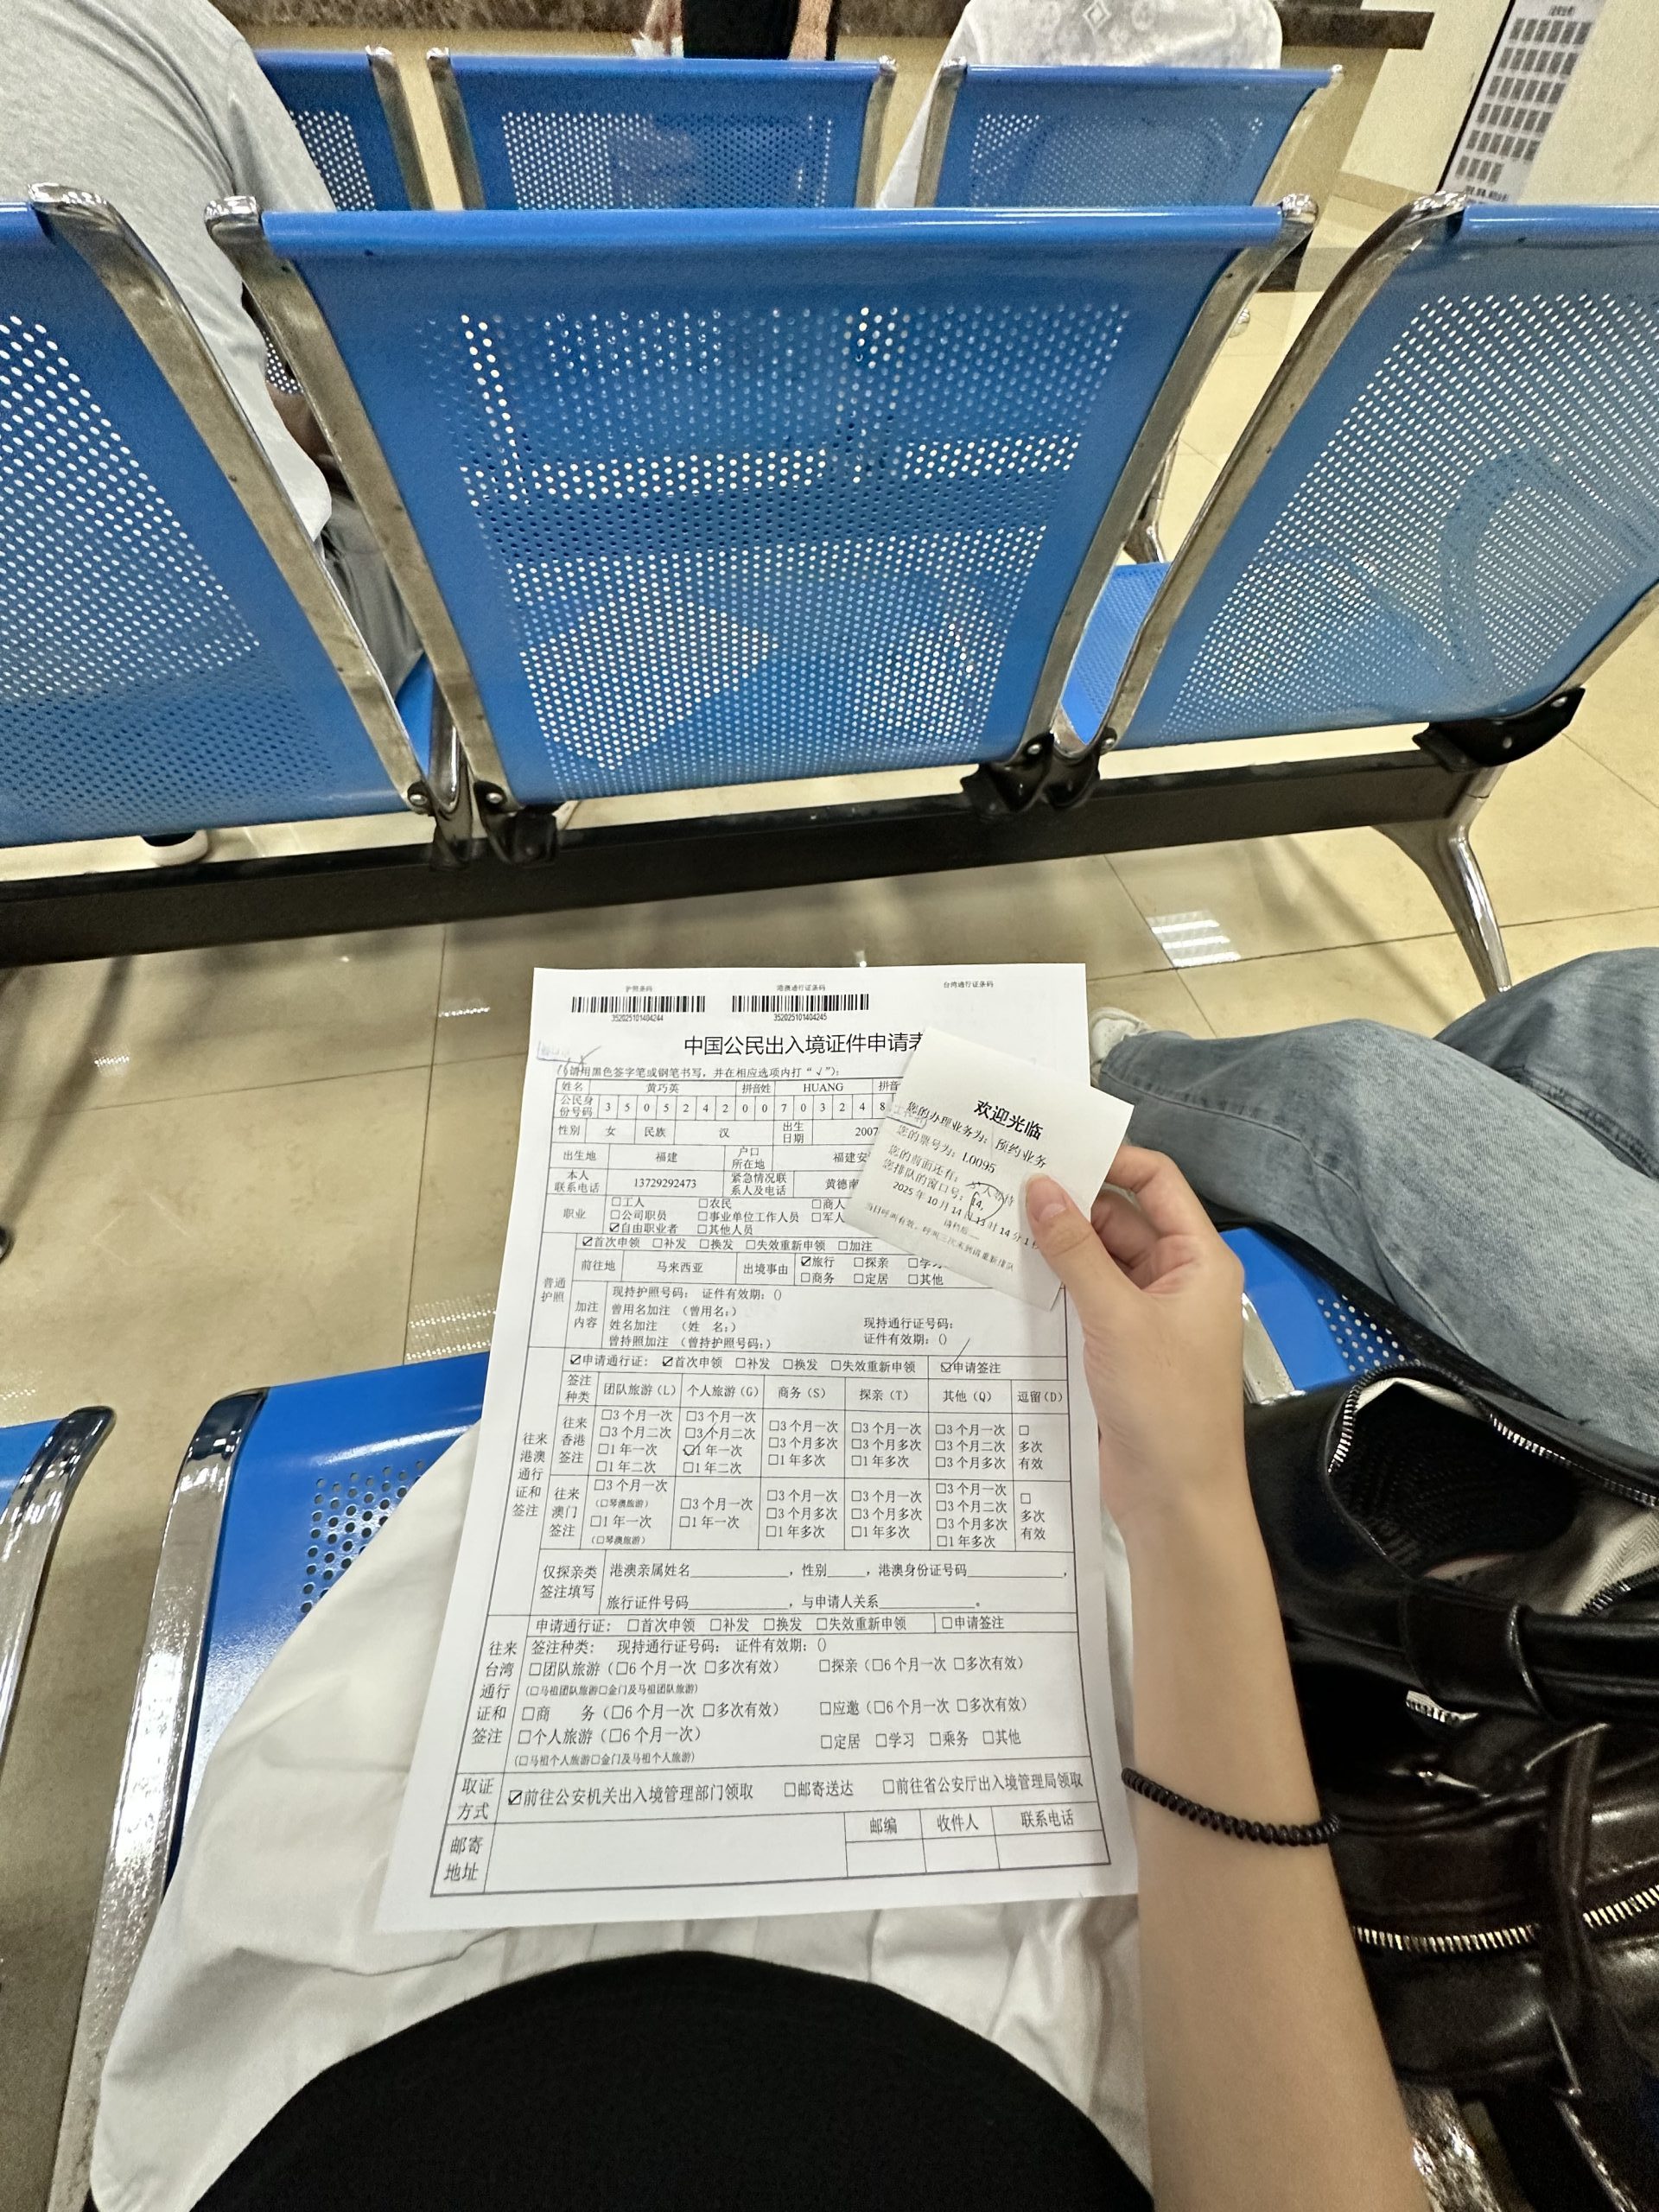 护照条码
港澳通行证条码
台湾通行证条码
352025101404244
352025101404245
中国公民出入境证件申请表
请用黑色签字笔或钢笔书写，并在相应选项内打“√”）：
姓名 黄巧英 拼音姓 HUANG 拼音
公民身份号码 3 5 0 5 2 4 2 0 0 7 0 3 2 4 8
性别 女 民族 汉 出生日期 2007
出生地 福建 户口所在地 福建安
本人联系电话 13729292473 紧急情况联系人及电话 黄德南
职业
☐工人 ☐农民 ☐商人
☐公司职员 ☐事业单位工作人员 ☐军人
☑自由职业者 ☐其他人员
普通护照
☑首次申领 ☐补发 ☐换发 ☐失效重新申领 ☐加注
前往地 马来西亚 出境事由 ☑旅行 ☐探亲 ☐学习
☐商务 ☐定居 ☐其他
加注内容
现持护照号码： 证件有效期：()
曾用名加注 （曾用名：）
姓名加注 （姓 名：） 现持通行证号码：
曾持照加注 （曾持护照号码：） 证件有效期：()
往来港澳通行证和签注
☑申请通行证： ☑首次申领 ☐补发 ☐换发 ☐失效重新申领 ☑申请签注
签注种类 团队旅游（L） 个人旅游（G） 商务（S） 探亲（T） 其他（Q） 逗留（D）
往来香港签注
☐3个月一次 ☐3个月一次 ☐3个月一次 ☐3个月一次 ☐3个月一次 ☐
☐3个月二次 ☐3个月二次 ☐3个月多次 ☐3个月多次 ☐3个月二次 多次
☐1年一次 ☑1年一次 ☐1年多次 ☐1年多次 ☐3个月多次 有效
☐1年二次 ☐1年二次
往来澳门签注
☐3个月一次 ☐3个月一次 ☐3个月一次 ☐3个月一次 ☐3个月一次 ☐
（☐琴澳旅游） ☐1年一次 ☐3个月多次 ☐3个月多次 ☐3个月二次 多次
☐1年一次 ☐1年多次 ☐1年多次 ☐3个月多次 有效
（☐琴澳旅游） ☐1年多次
仅探亲类签注填写
港澳亲属姓名____________，性别_____，港澳身份证号码____________，
旅行证件号码____________，与申请人关系____________。
往来台湾通行证和签注
申请通行证： ☐首次申领 ☐补发 ☐换发 ☐失效重新申领 ☐申请签注
签注种类： 现持通行证号码： 证件有效期：()
☐团队旅游（☐6个月一次 ☐多次有效） ☐探亲（☐6个月一次 ☐多次有效）
（☐马祖团队旅游☐金门及马祖团队旅游）
☐商 务（☐6个月一次 ☐多次有效） ☐应邀（☐6个月一次 ☐多次有效）
☐个人旅游（☐6个月一次） ☐定居 ☐学习 ☐乘务 ☐其他
（☐马祖个人旅游☐金门及马祖个人旅游）
取证方式 ☑前往公安机关出入境管理部门领取 ☐邮寄送达 ☐前往省公安厅出入境管理局领取
邮寄地址 邮编 收件人 联系电话
欢迎光临
您的办理业务为： 预约业务
您的票号为：L0095
您的前面还有：
您排队的窗口号：14,
2025年10月14日 13时14分1秒
请稍后
当日呼叫有效，呼叫三次未到请重新排队